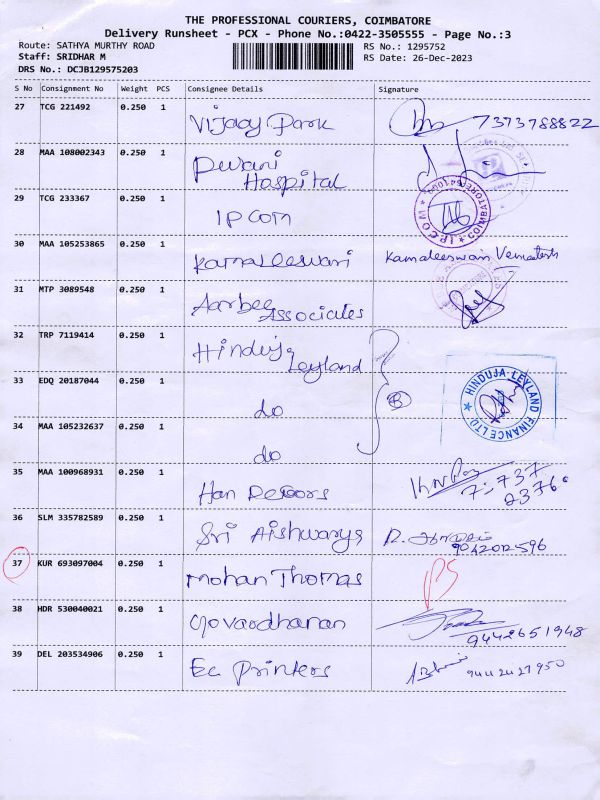 THE PROFESSIONAL COURIERS, COIMBATORE
Delivery Runsheet - PCX - Phone No.:0422-3505555 - Page No.:3
Route: SATHYA MURTHY ROAD
RS No.: 1295752
Staff: SRIDHAR M
RS Date: 26-Dec-2023
DRS No.: DCJB129575203
S No Consignment No Weight PCS Consignee Details Signature
27 TCG 221492 0.250 1 Vijaay Park 7373788822
28 MAA 108002343 0.250 1 Pwani Hospital
29 TCG 233367 0.250 1 IPCOM
IPCOWO COIMBATORE 641009
30 MAA 105253865 0.250 1 Kamaleeswari Kamaleeswari Venkatesh
31 MTP 3089548 0.250 1 Aarbee Associates
32 TRP 7119414 0.250 1 Hinduja Leyland
33 EDQ 20187044 0.250 1 do
HINDUJA LEYLAND FINANCE LTD
34 MAA 105232637 0.250 1 do
35 MAA 100968931 0.250 1 Han Decors
36 SLM 335782589 0.250 1 Sri Aishwarya 9042002596
37 KUR 693097004 0.250 1 Mohan Thomas
38 HDR 530040021 0.250 1 Govardhanan 9442651948
39 DEL 203534906 0.250 1 Ec Printers 9442427950